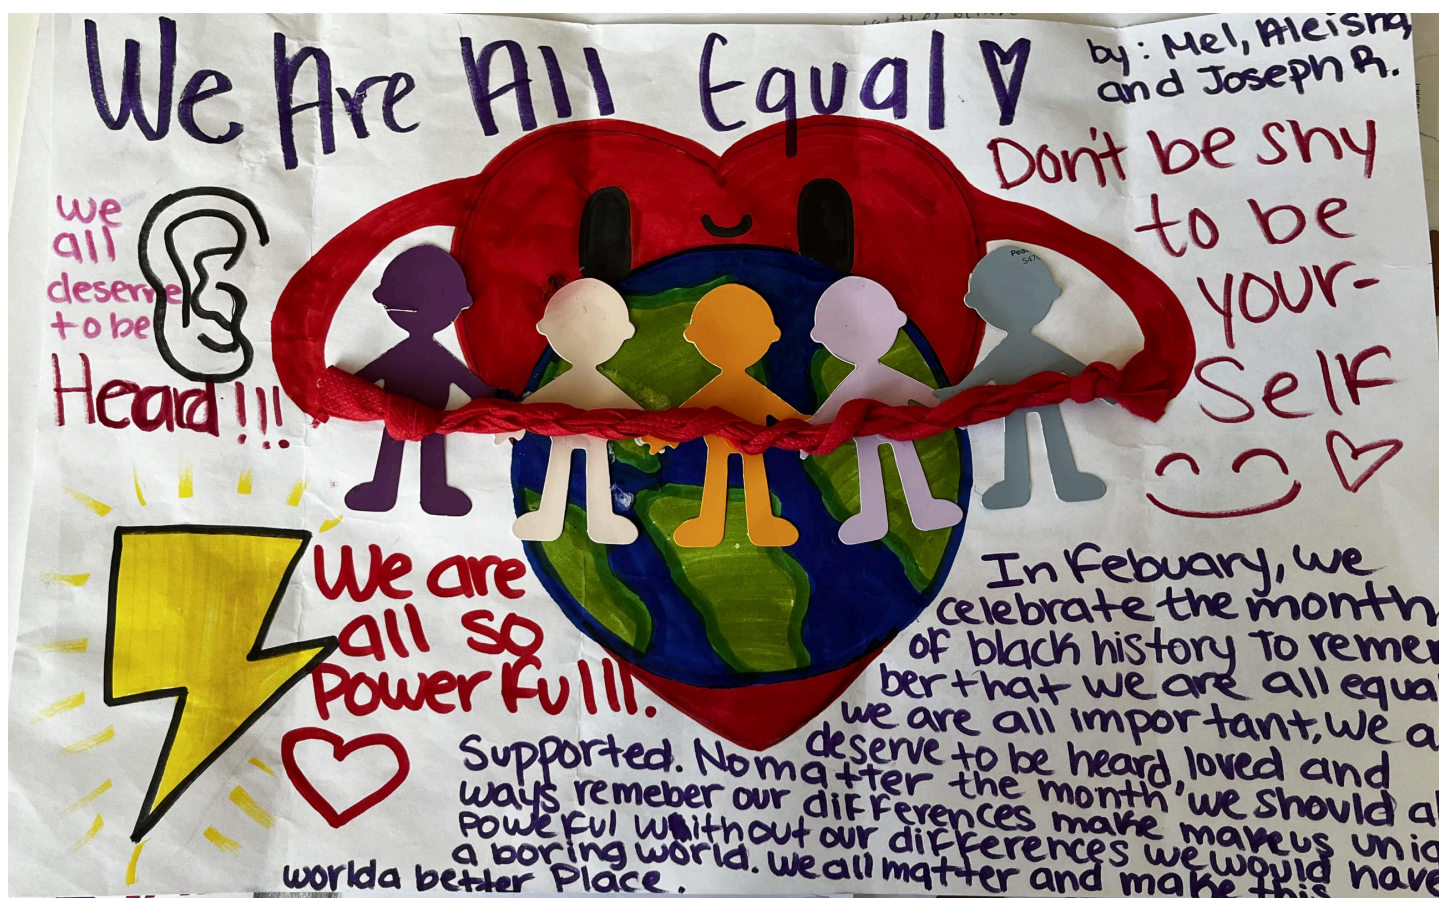 We Are All Equal
by: Mel, Aleisha,
and Joseph R.
Don't be shy
to be
your-
Self
we
all
deserve
to be
Heard!!!
We are
all so
Powerful!!.
In Febuary, we
celebrate the month
of black history To remem
ber that we are all equa
we are all important, we a
deserve to be heard, loved and
Supported. No matter the month, we should al
ways remeber our differences make make us uniq
Powerful without our differences we would have
a boring world. we all matter and make this
world a better Place.